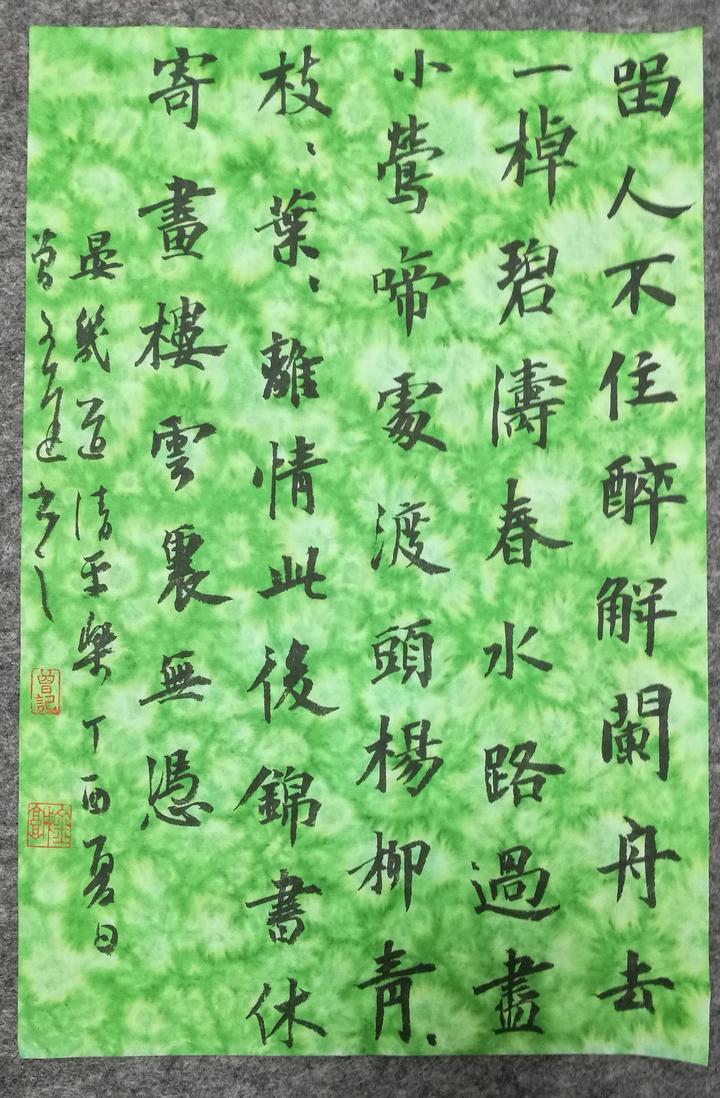 畱人不住醉解闌舟去
一棹碧濤春水路過盡
小鶯啼處渡頭楊柳青、
枝、葉、離情此後錦書休
寄畫樓雲裏無憑
晏幾道清平樂丁酉夏日
曾書
曾記